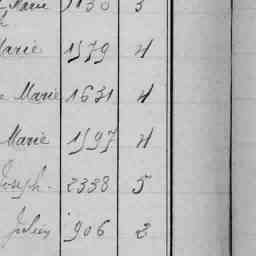 Marie 1130 3
Marie 1579 4
Marie 1631 4
Marie 1597 4
Joseph 2338 5
Julien 906 2